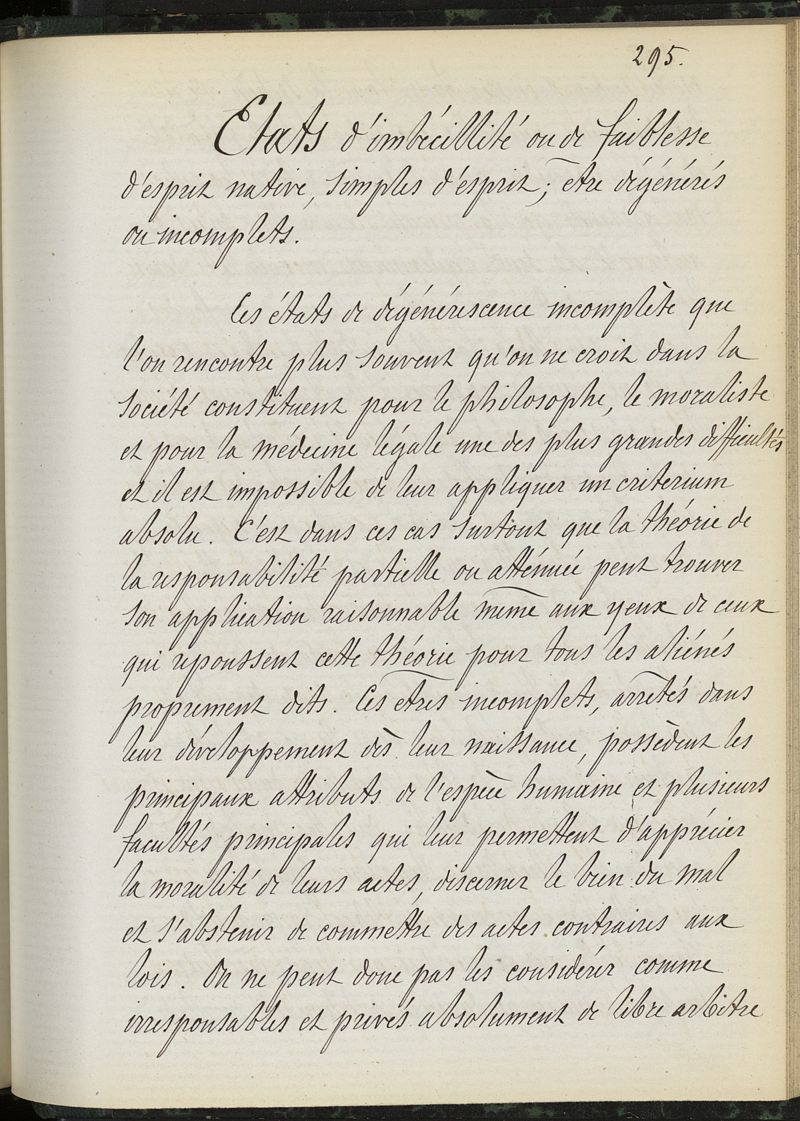 295.
Etats d'imbécillité ou de faiblesse
d'esprit native, simples d'esprit; etre dégénérés
ou incomplets.
Ces états de dégénérescence incomplète que
l'on rencontre plus souvent qu'on ne croit dans la
société constituent pour le philosophe, le moraliste
et pour la médecine légale une des plus grandes difficultés
et il est impossible de leur appliquer un criterium
absolu. C'est dans ces cas surtout que la théorie de
la responsabilité partielle ou atténuée peut trouver
son application raisonnable même aux yeux de ceux
qui repoussent cette théorie pour tous les aliénés
proprement dits. Ces êtres incomplets, arrêtés dans
leur développement dès leur naissance, possèdent les
principaux attributs de l'espèce humaine et plusieurs
facultés principales qui leur permettent d'apprécier
la moralité de leurs actes, discerner le bien du mal
et s'abstenir de commettre des actes contraires aux
lois. On ne peut donc pas les considérer comme
irresponsables et privés absolument de libre arbitre